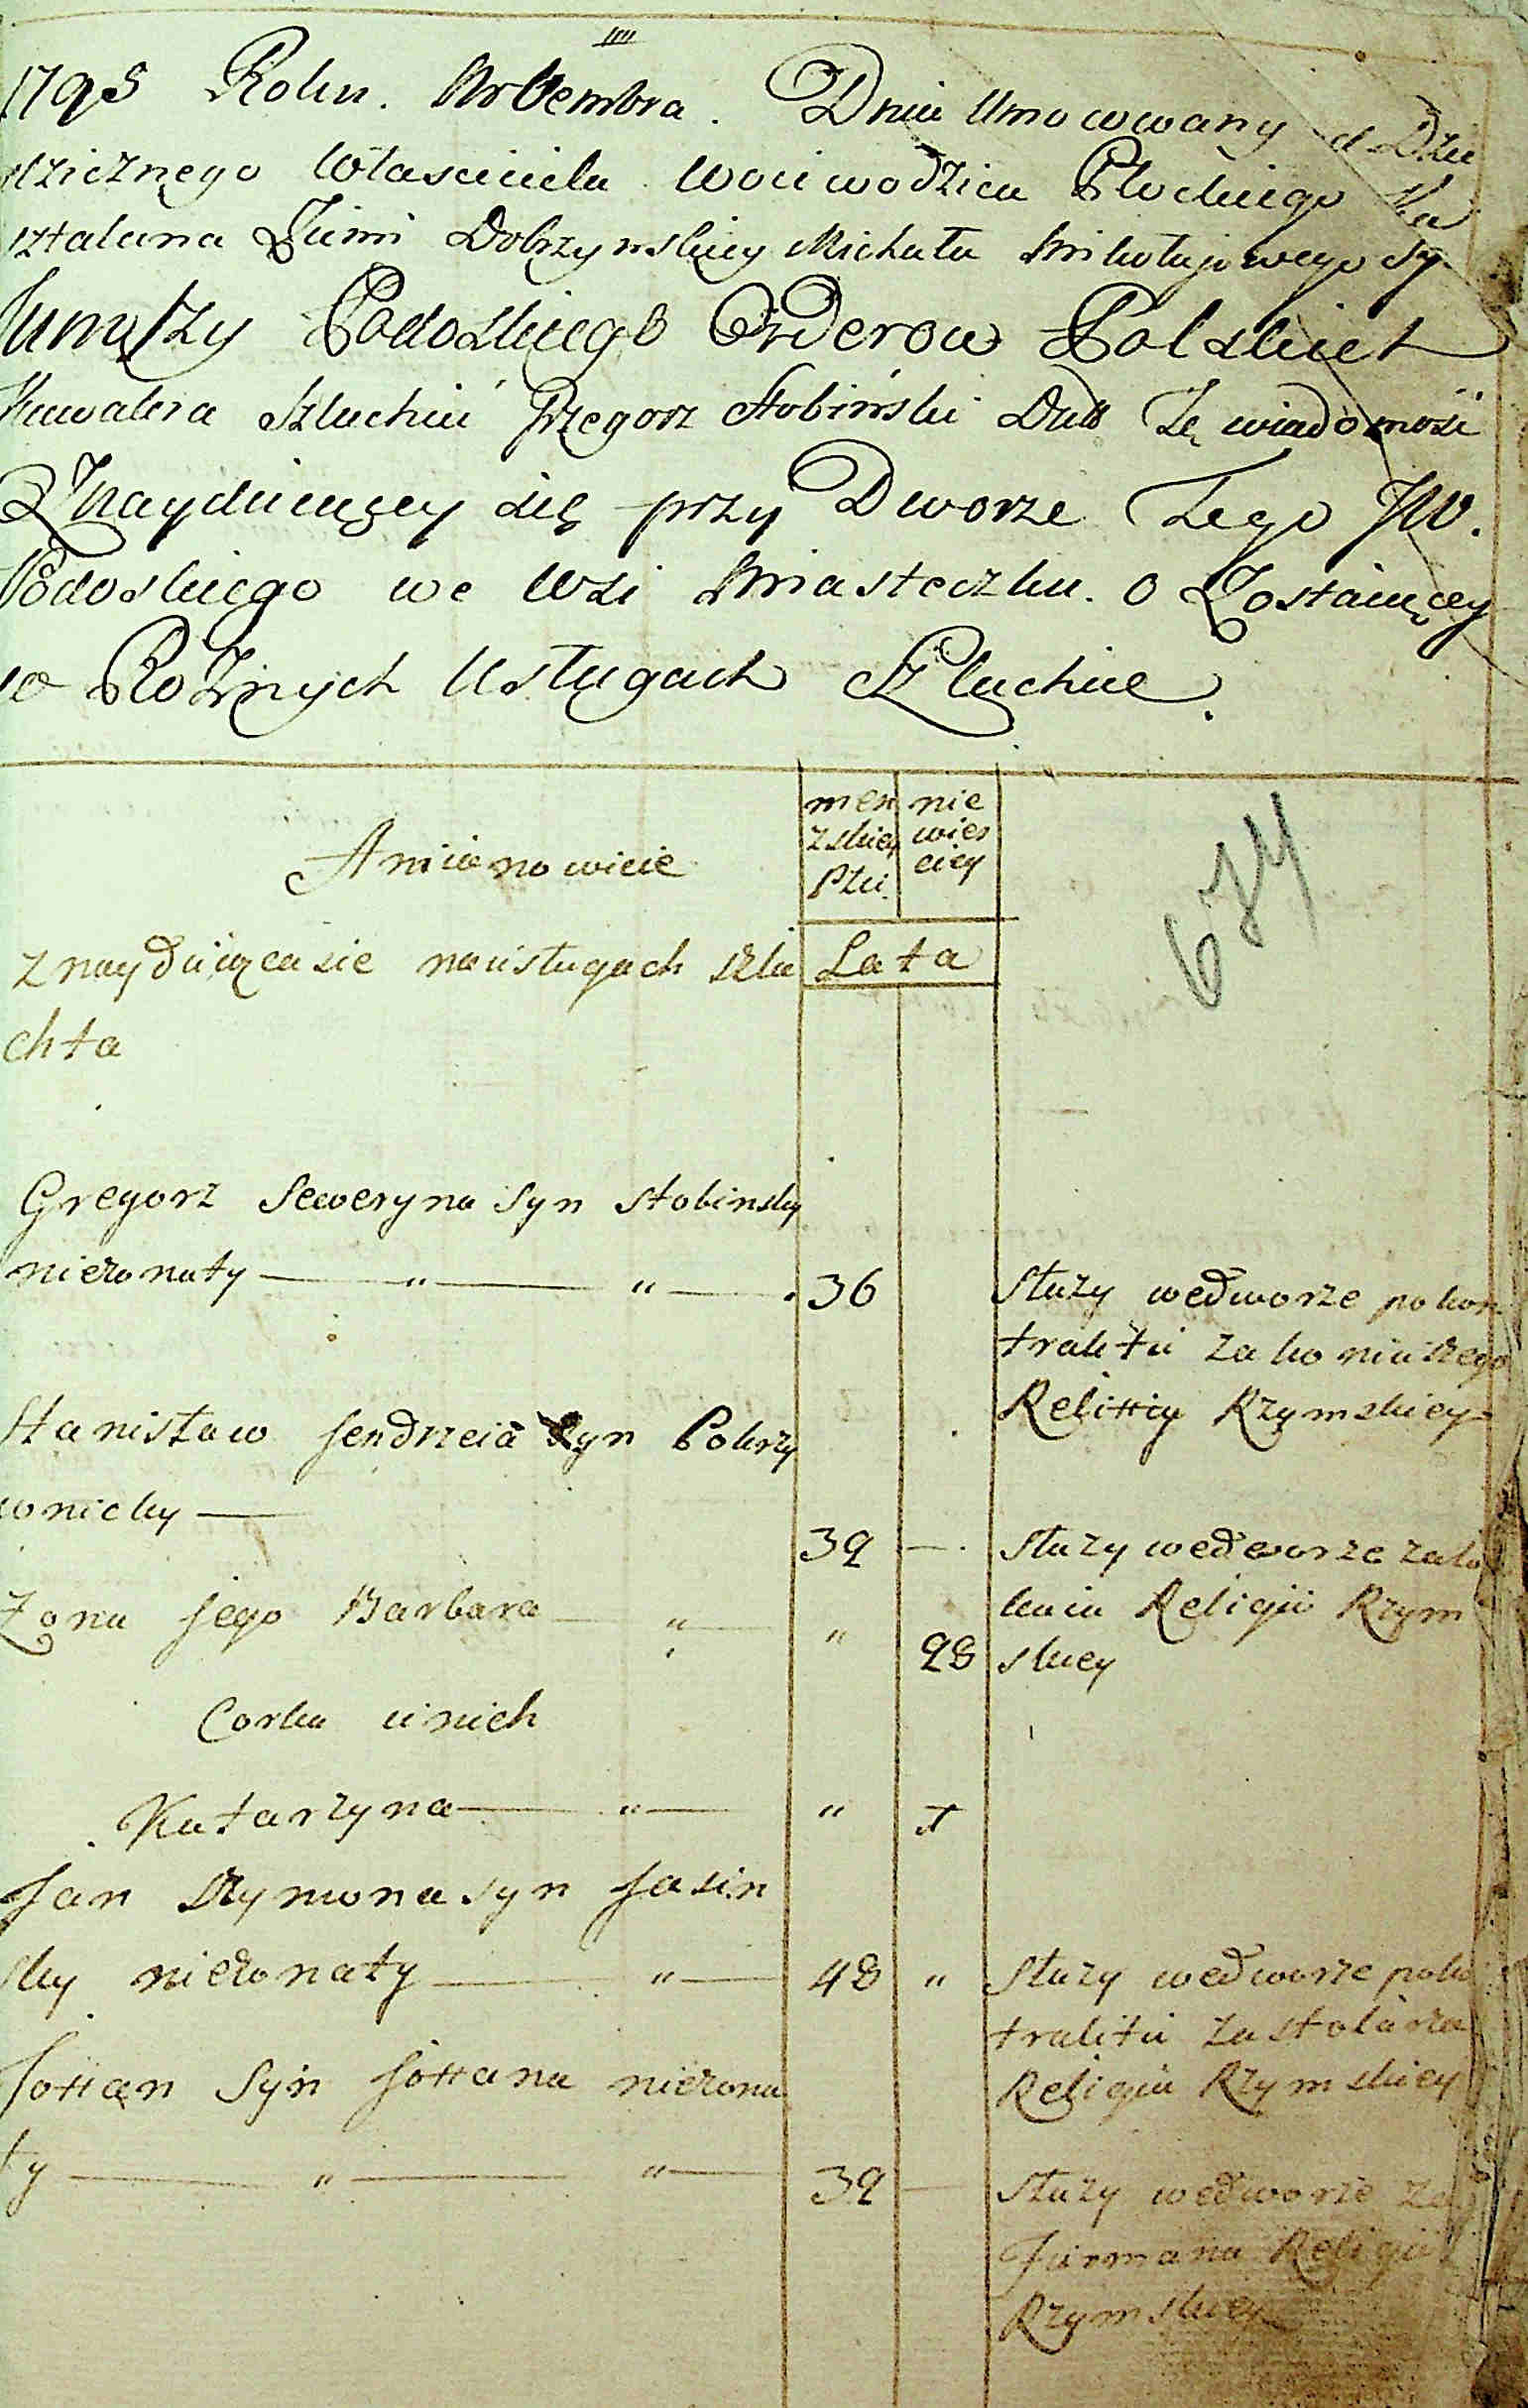 1795 Roku. Nowembra. Dnia Umowwany d Dzie
dzicznego Własciciela Woiewodzica Płockiego Ka
sztalana Ziemi Dobrzynskiey Michała Mikołajowego Sy.
Junoszy Podoskiego Orderow Polskich
Kawalera Szlachcic Grzegorz Stobiński Dał Tę wiadomość
Znayduiącey się przy Dworze Tego JW.
Podoskiego we Wsi Miasteczku. O Zostaiącey
w Rożnych Usługach Szlachcie.
Amianowicie
męn
zskiey
Płci.
nie
wies
ciey
674
znayduiącasie na usługach szla
chta
Lata
Gregorz Seweryna Syn Stobinsky
nieżonaty — " — " — . 36
Służy wedworze pokon
traktu zakoniuszego
Religiy Rzymskiey
Stanisław Jendrzeia Syn Pokrzy
wnicky —
39 — .
Służy wedworze zalo
kaia Religii Rzym
skiey
Żona Jego Barbara — " — " 28
Corka u nich
Katarzyna — " — " 1
Jan Szymona syn Jasin
sky nieżonaty — " — 48 "
Służy wedworze poko
traktu zastolarza
Religii Rzymskiey
Johan Syn Johana nieżona
ty — " — " — 39 —
Służy wedworze za
Furmana Religii
Rzymskiey